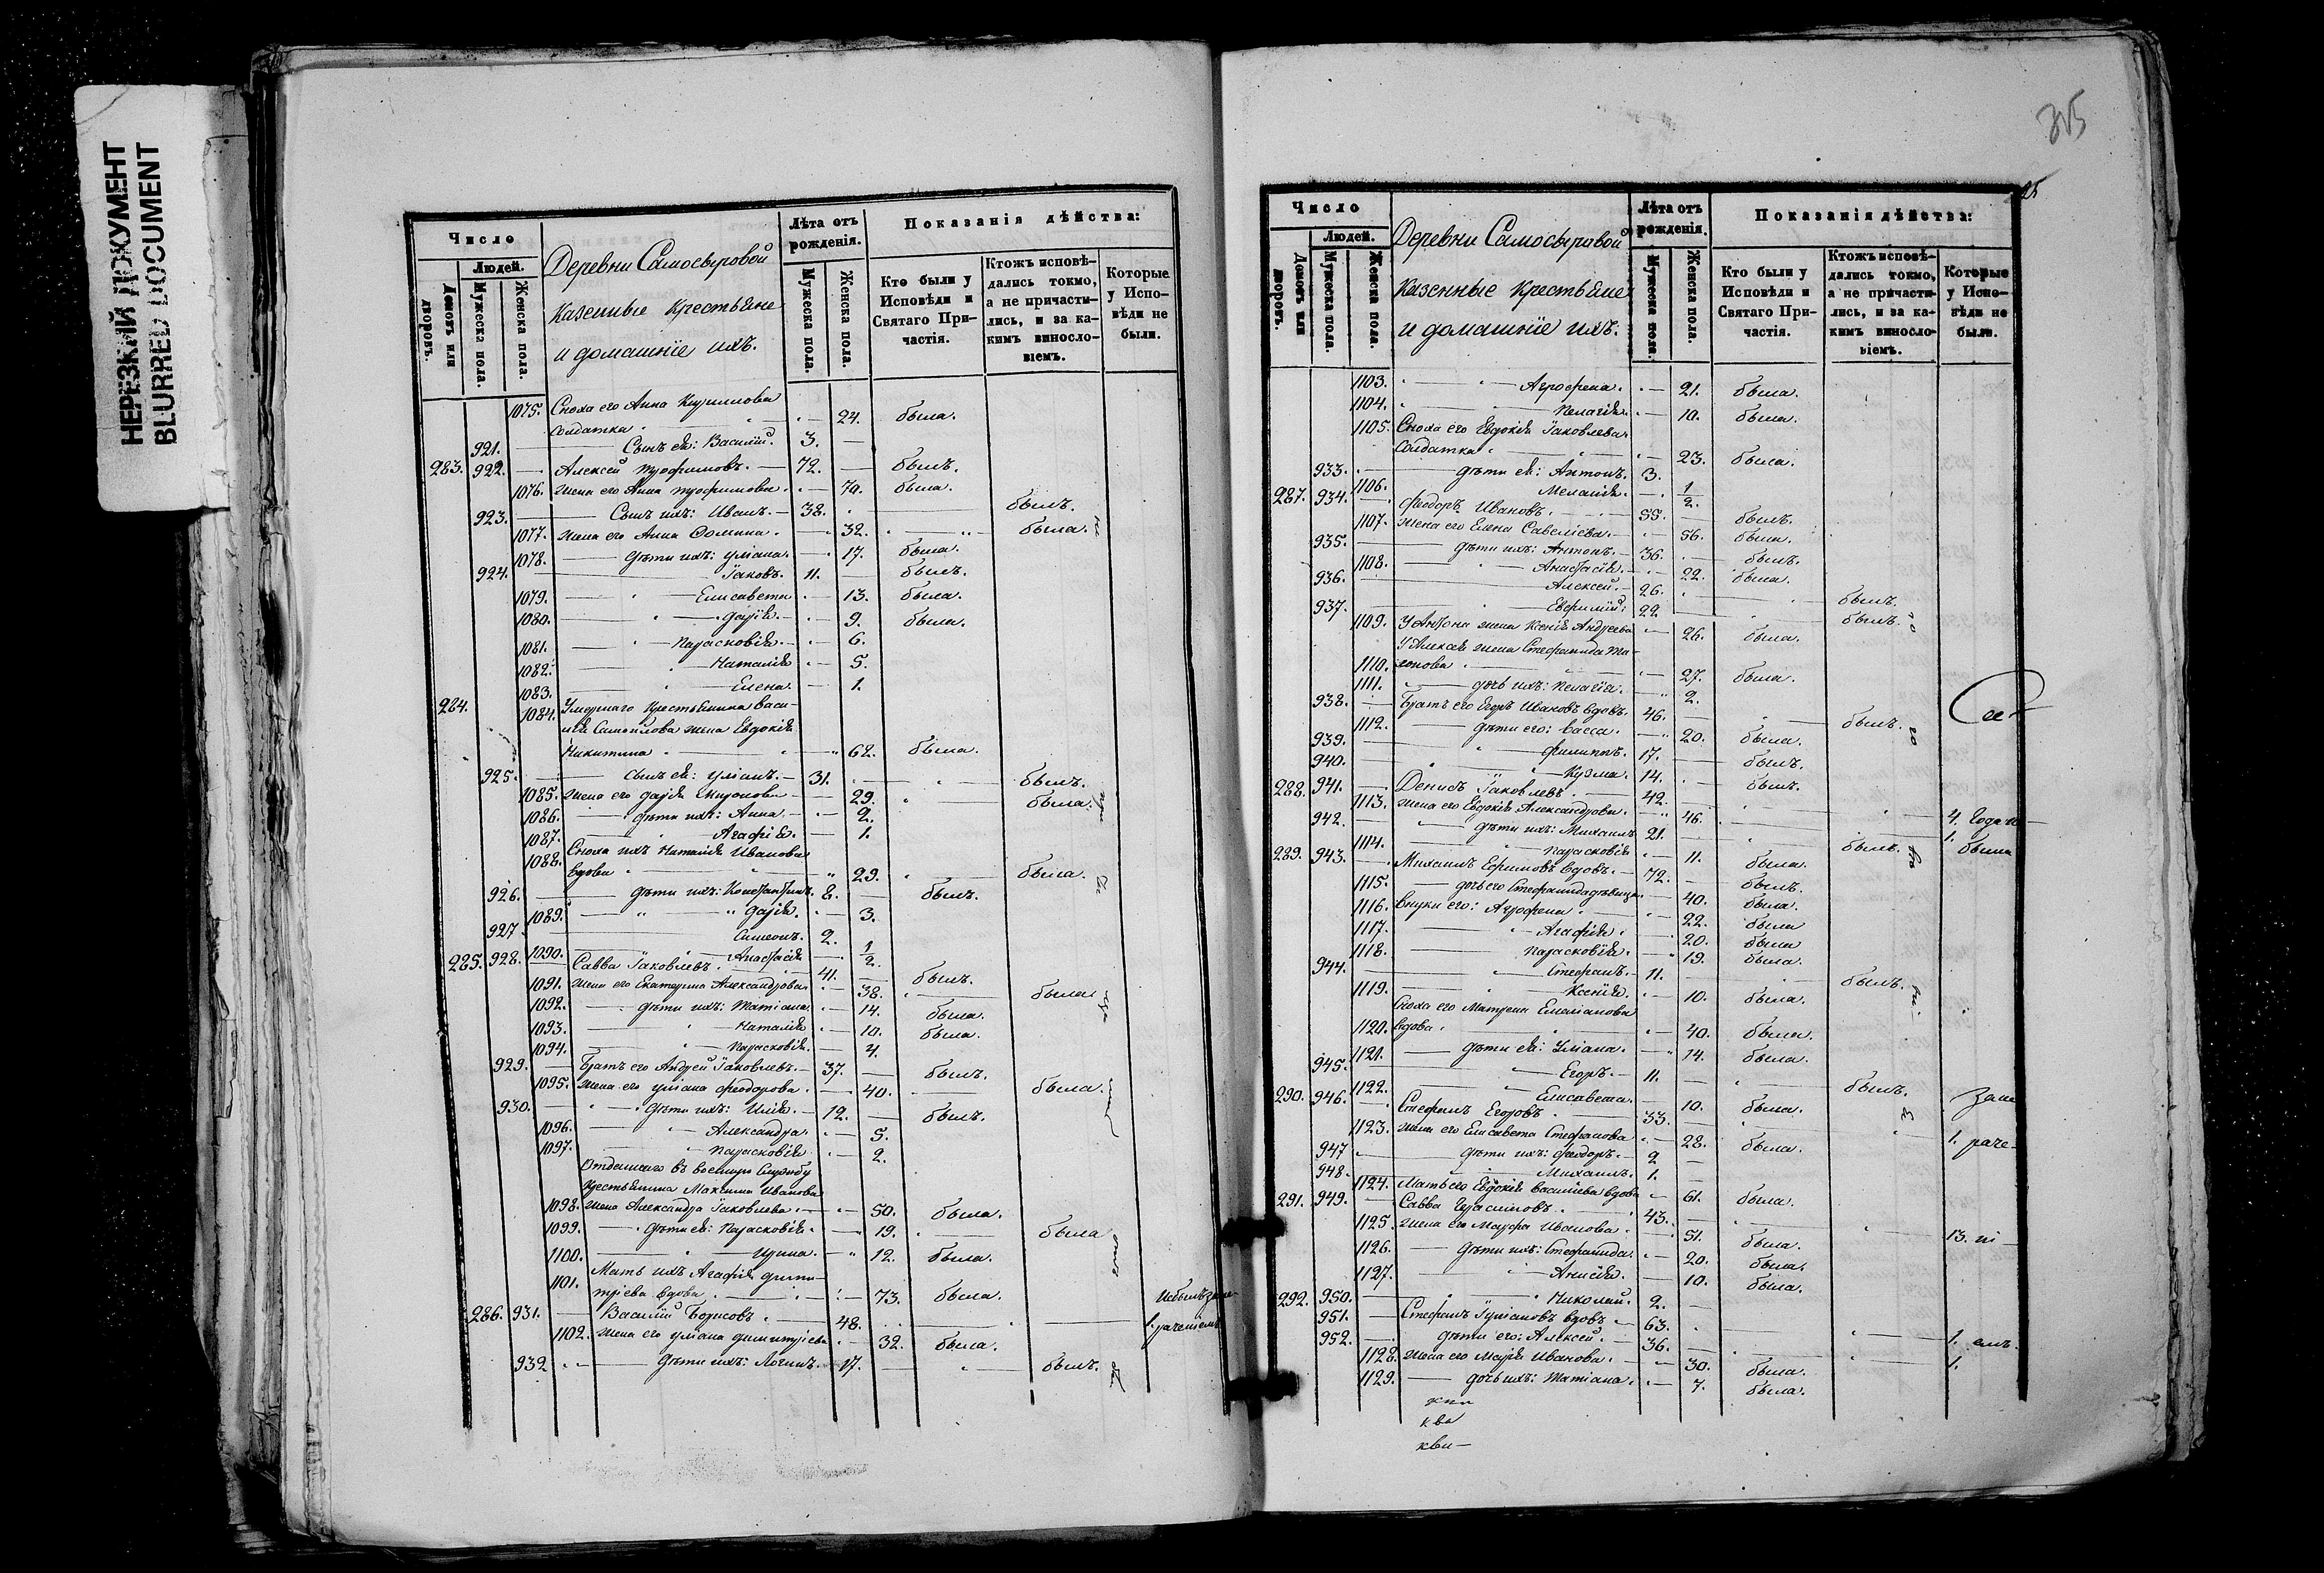 НЕРЕЗКИЙ ДОКУМЕНТ
BLURRED DOCUMENT
Число
Людей.
Домовъ или дворовъ.
Мужеска пола.
Женска пола.
Деревни Самосыровой
Казенные Крестьяне
и домашніе ихъ.
Лѣта отъ рожденія.
Мужеска пола.
Женска пола.
Показанія дѣйства:
Кто были у Исповѣди и Святаго Причастія.
Ктожъ исповѣдались токмо, а не причастились, и за какимъ винословіемъ.
Которые у Исповѣди не были.
1075. Сноха его Анна Кириллова
солдатка 24. была.
921. Сынъ ея: Василій. 3.
283. 922. Алексей Трофимовъ. 72. былъ.
1076. Жена его Анна Трофимова. 70. была.
923. Сынъ ихъ: Иванъ. 38. былъ.
1077. Жена его Анна Фомина. 32. была.
1078. Дѣти ихъ: Уліана. 17. была.
924. Іаковъ. 11. былъ.
1079. Елисавета 13. была.
1080. Дарія. 9. была.
1081. Парасковія. 6.
1082. Наталія 5.
1083. Елена. 1.
284. 1084. Умершаго Крестьянина Васи-
лія Самойлова жена Евдокія
Никитина 62. была.
925. сынъ ея: Уліанъ. 31. былъ.
1085. Жена его Дарія Миронова 29. была.
1086. дѣти ихъ: Анна. 2.
1087. Агафія. 1.
1088. Сноха ихъ Наталія Иванова
вдова 29. была.
926. дѣти ихъ: Константинъ. 8. былъ.
1089. Дарія. 3.
927. Симеонъ. 2.
1090. Анастасія 1/2.
285. 928. Савва Іаковлевъ. 41. былъ.
1091. Жена его Екатерина Александрова 38. была
1092. дѣти ихъ: Татіана. 14. была.
1093. Наталія 10. была.
1094. Парасковія. 4.
929. Братъ его Андрей Іаковлевъ. 37. былъ.
1095. Жена его Уліана Феодорова. 40. была.
930. Дѣти ихъ: Илія. 12. былъ.
1096. Александра. 5.
1097. Парасковія 2.
Отданнаго въ военную службу
Крестьянина Максима Иванова
1098. Жена Александра Іаковлева. 50. была.
1099. Дѣти ея: Парасковія. 19. была
1100. Ирина. 12. была.
1101. Мать ихъ Агафія Дими-
тріева вдова. 73. была.
286. 931. Василій Борисовъ 48. 1.
1102. Жена его Уліана Димитріева. 32. была.
932 Дѣти ихъ: Логинъ. 17. былъ.
315
Число
Людей.
Домовъ или дворовъ.
Мужеска пола.
Женска пола.
Деревни Самосыровой
Казенные Крестьяне
и домашніе ихъ.
Лѣта отъ рожденія.
Мужеска пола.
Женска пола.
Показанія дѣйства:
Кто были у Исповѣди и Святаго Причастія.
Ктожъ исповѣдались токмо, а не причастились, и за какимъ винословіемъ.
Которые у Исповѣди не были.
1103. Агрофена. 21. была.
1104. Пелагія. 10. была.
1105. Сноха его Евдокія Іаковлева.
Солдатка 23. была.
933. дѣти ея: Антонъ. 3.
1106. Меланія. 1/2.
287. 934. Феодоръ Ивановъ. 55. былъ.
1107. Жена его Елена Савеліева. 56. была.
935. дѣти ихъ: Антонъ. 36. былъ.
1108. Анастасія. 22. была.
936. Алексей. 26. былъ.
937. Евфимій. 22. былъ.
1109. У Антона жена Ксенія Андреева 26. была.
У Алексея жена Стефанида Ти-
1110. хонова 27. была.
1111. дочь ихъ: Пелагія. 2.
938. Братъ его Егоръ Ивановъ вдовъ. 46. былъ.
1112. дѣти его: Васса. 20. была.
939. Филиппъ. 17. былъ.
940. Кузма. 14. былъ.
288. 941. Денисъ Іаковлевъ. 42. 4.
1113. Жена его Евдокія Александрова. 46. 1.
942. дѣти ихъ: Михаилъ 21. былъ.
1114. Парасковія 11. была.
289. 943. Михаилъ Ефимовъ вдовъ. 72. былъ.
1115. дочь его Стефанида дѣвица 40. была.
1116. Внуки его: Агрофена 22. была
1117. Агафія 20. была
1118. Парасковія. 19. была.
944. Стефанъ. 11. былъ.
1119. Ксенія. 10. была.
Сноха его Матрена Емеліанова
1120. вдова. 40. была.
1121. дѣти ея: Уліана. 14. была.
945. Егоръ. 11. былъ.
1122. Елисавета. 10. была.
290. 946. Стефанъ Егоровъ. 33. 1.
1123. Жена его Елисавета Стефанова 28. была.
947. дѣти ихъ: Феодоръ. 2
948. Михаилъ. 1.
1124. Мать его Евдокія Васильева вдова 61. была.
291. 949. Савва Герасимовъ. 43. 13.
1125. Жена его Марфа Иванова. 51. была.
1126. Дѣти ихъ: Стефанида. 20. была.
1127. Анисія. 10. была.
950. Николай. 2.
292. 951. Стефанъ Гуріановъ вдовъ 63. 1.
952. дѣти его: Алексей. 36. 1.
1128. Жена его Марія Иванова. 30. была.
1129. дочь ихъ: Татіана. 7. была.